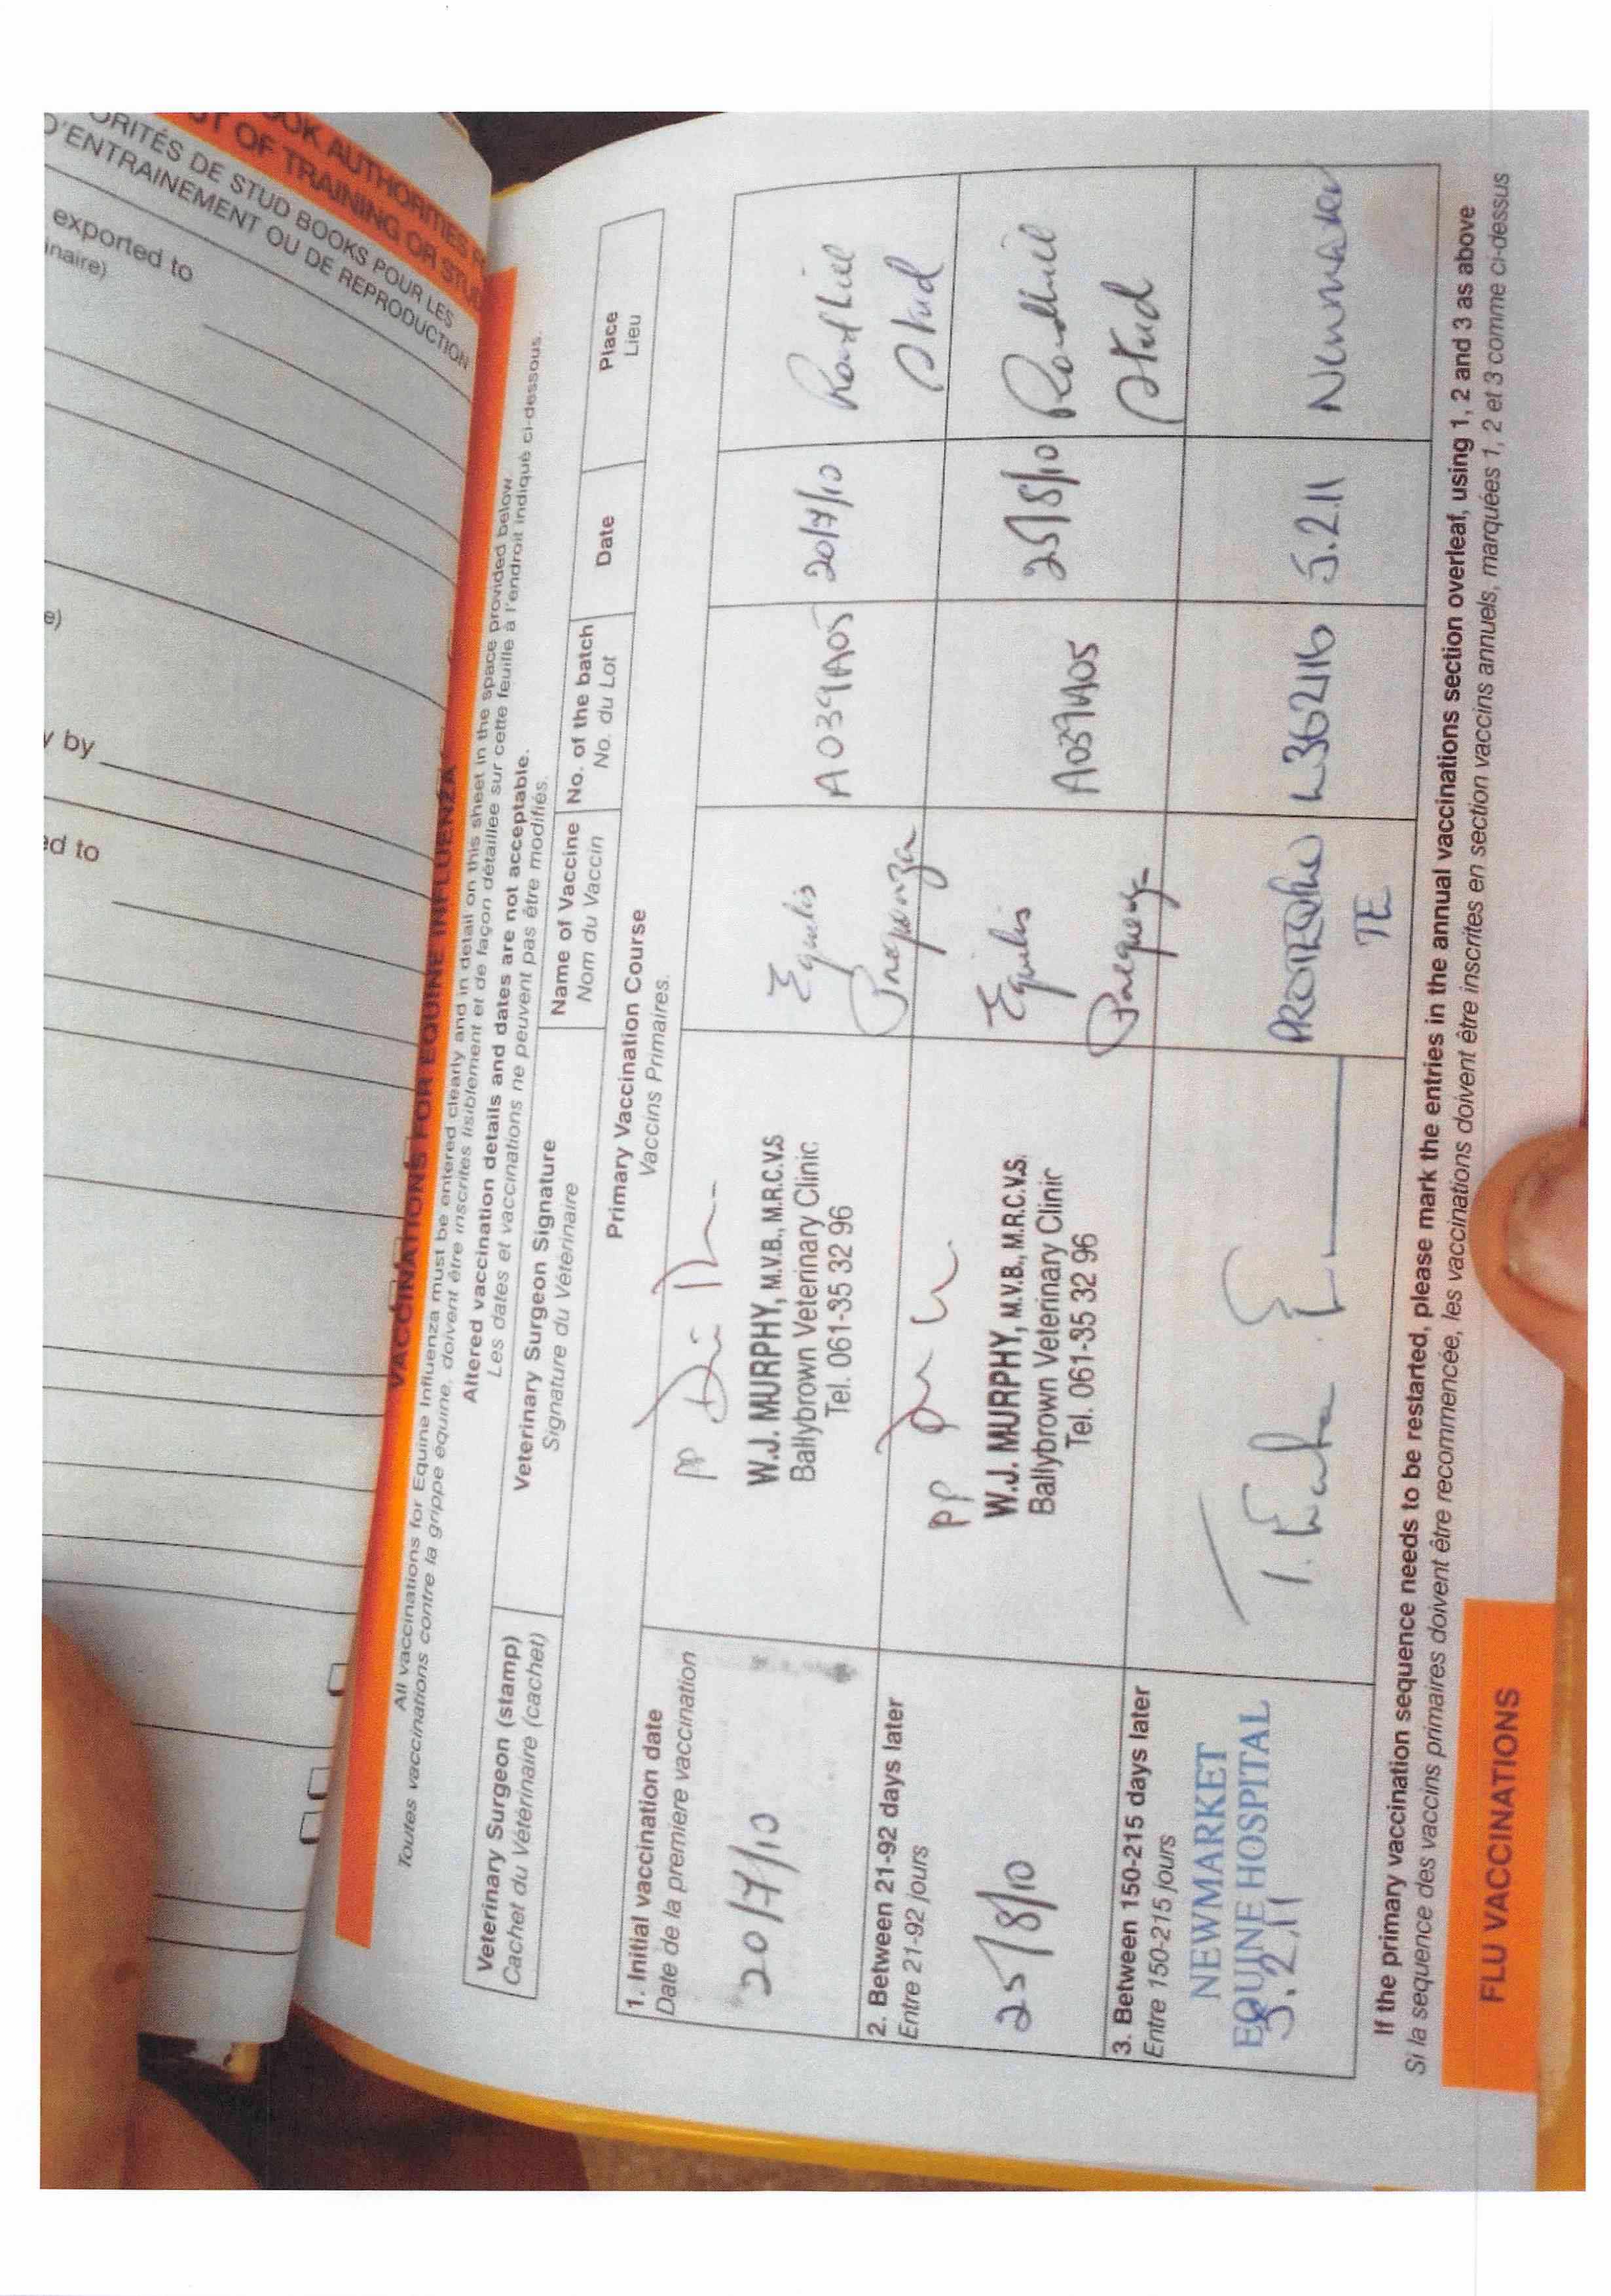 OOK AUTHORITIES
OUT OF TRAINING OR STUD
ORITÉS DE STUD BOOKS POUR LES
D'ENTRAINEMENT OU DE REPRODUCTION
exported to
inaire)
e)
y by
ed to
VACCINATIONS FOR EQUINE INFLUENZA
All vaccinations for Equine Influenza must be entered clearly and in detail on this sheet in the space provided below.
Toutes vaccinations contre la grippe équine, doivent être inscrites lisiblement et de façon détaillée sur cette feuille à l'endroit indiqué ci-dessous.
Altered vaccination details and dates are not acceptable.
Les dates et vaccinations ne peuvent pas être modifiés.
Veterinary Surgeon (stamp)
Cachet du Vétérinaire (cachet)
Veterinary Surgeon Signature
Signature du Vétérinaire
Name of Vaccine
Nom du Vaccin
No. of the batch
No. du Lot
Date
Place
Lieu
Primary Vaccination Course
Vaccins Primaires.
1. Initial vaccination date
Date de la premiere vaccination
20/7/10
PP
W.J. MURPHY, M.V.B., M.R.C.V.S
Ballybrown Veterinary Clinic
Tel. 061-35 32 96
Equilis
A039A05
20/7/10
Stud
2. Between 21-92 days later
Entre 21-92 jours
25/8/10
PP
W.J. MURPHY, M.V.B., M.R.C.V.S.
Ballybrown Veterinary Clinic
Tel. 061-35 32 96
Equilis
A039A05
25/8/10
Stud
3. Between 150-215 days later
Entre 150-215 jours
NEWMARKET
EQUINE HOSPITAL
5.2.11
TE
L362116
5.2.11
Newmarket
If the primary vaccination sequence needs to be restarted, please mark the entries in the annual vaccinations section overleaf, using 1, 2 and 3 as above
Si la sequence des vaccins primaires doivent être recommencée, les vaccinations doivent être inscrites en section vaccins annuels, marquées 1, 2 et 3 comme ci-dessus
FLU VACCINATIONS